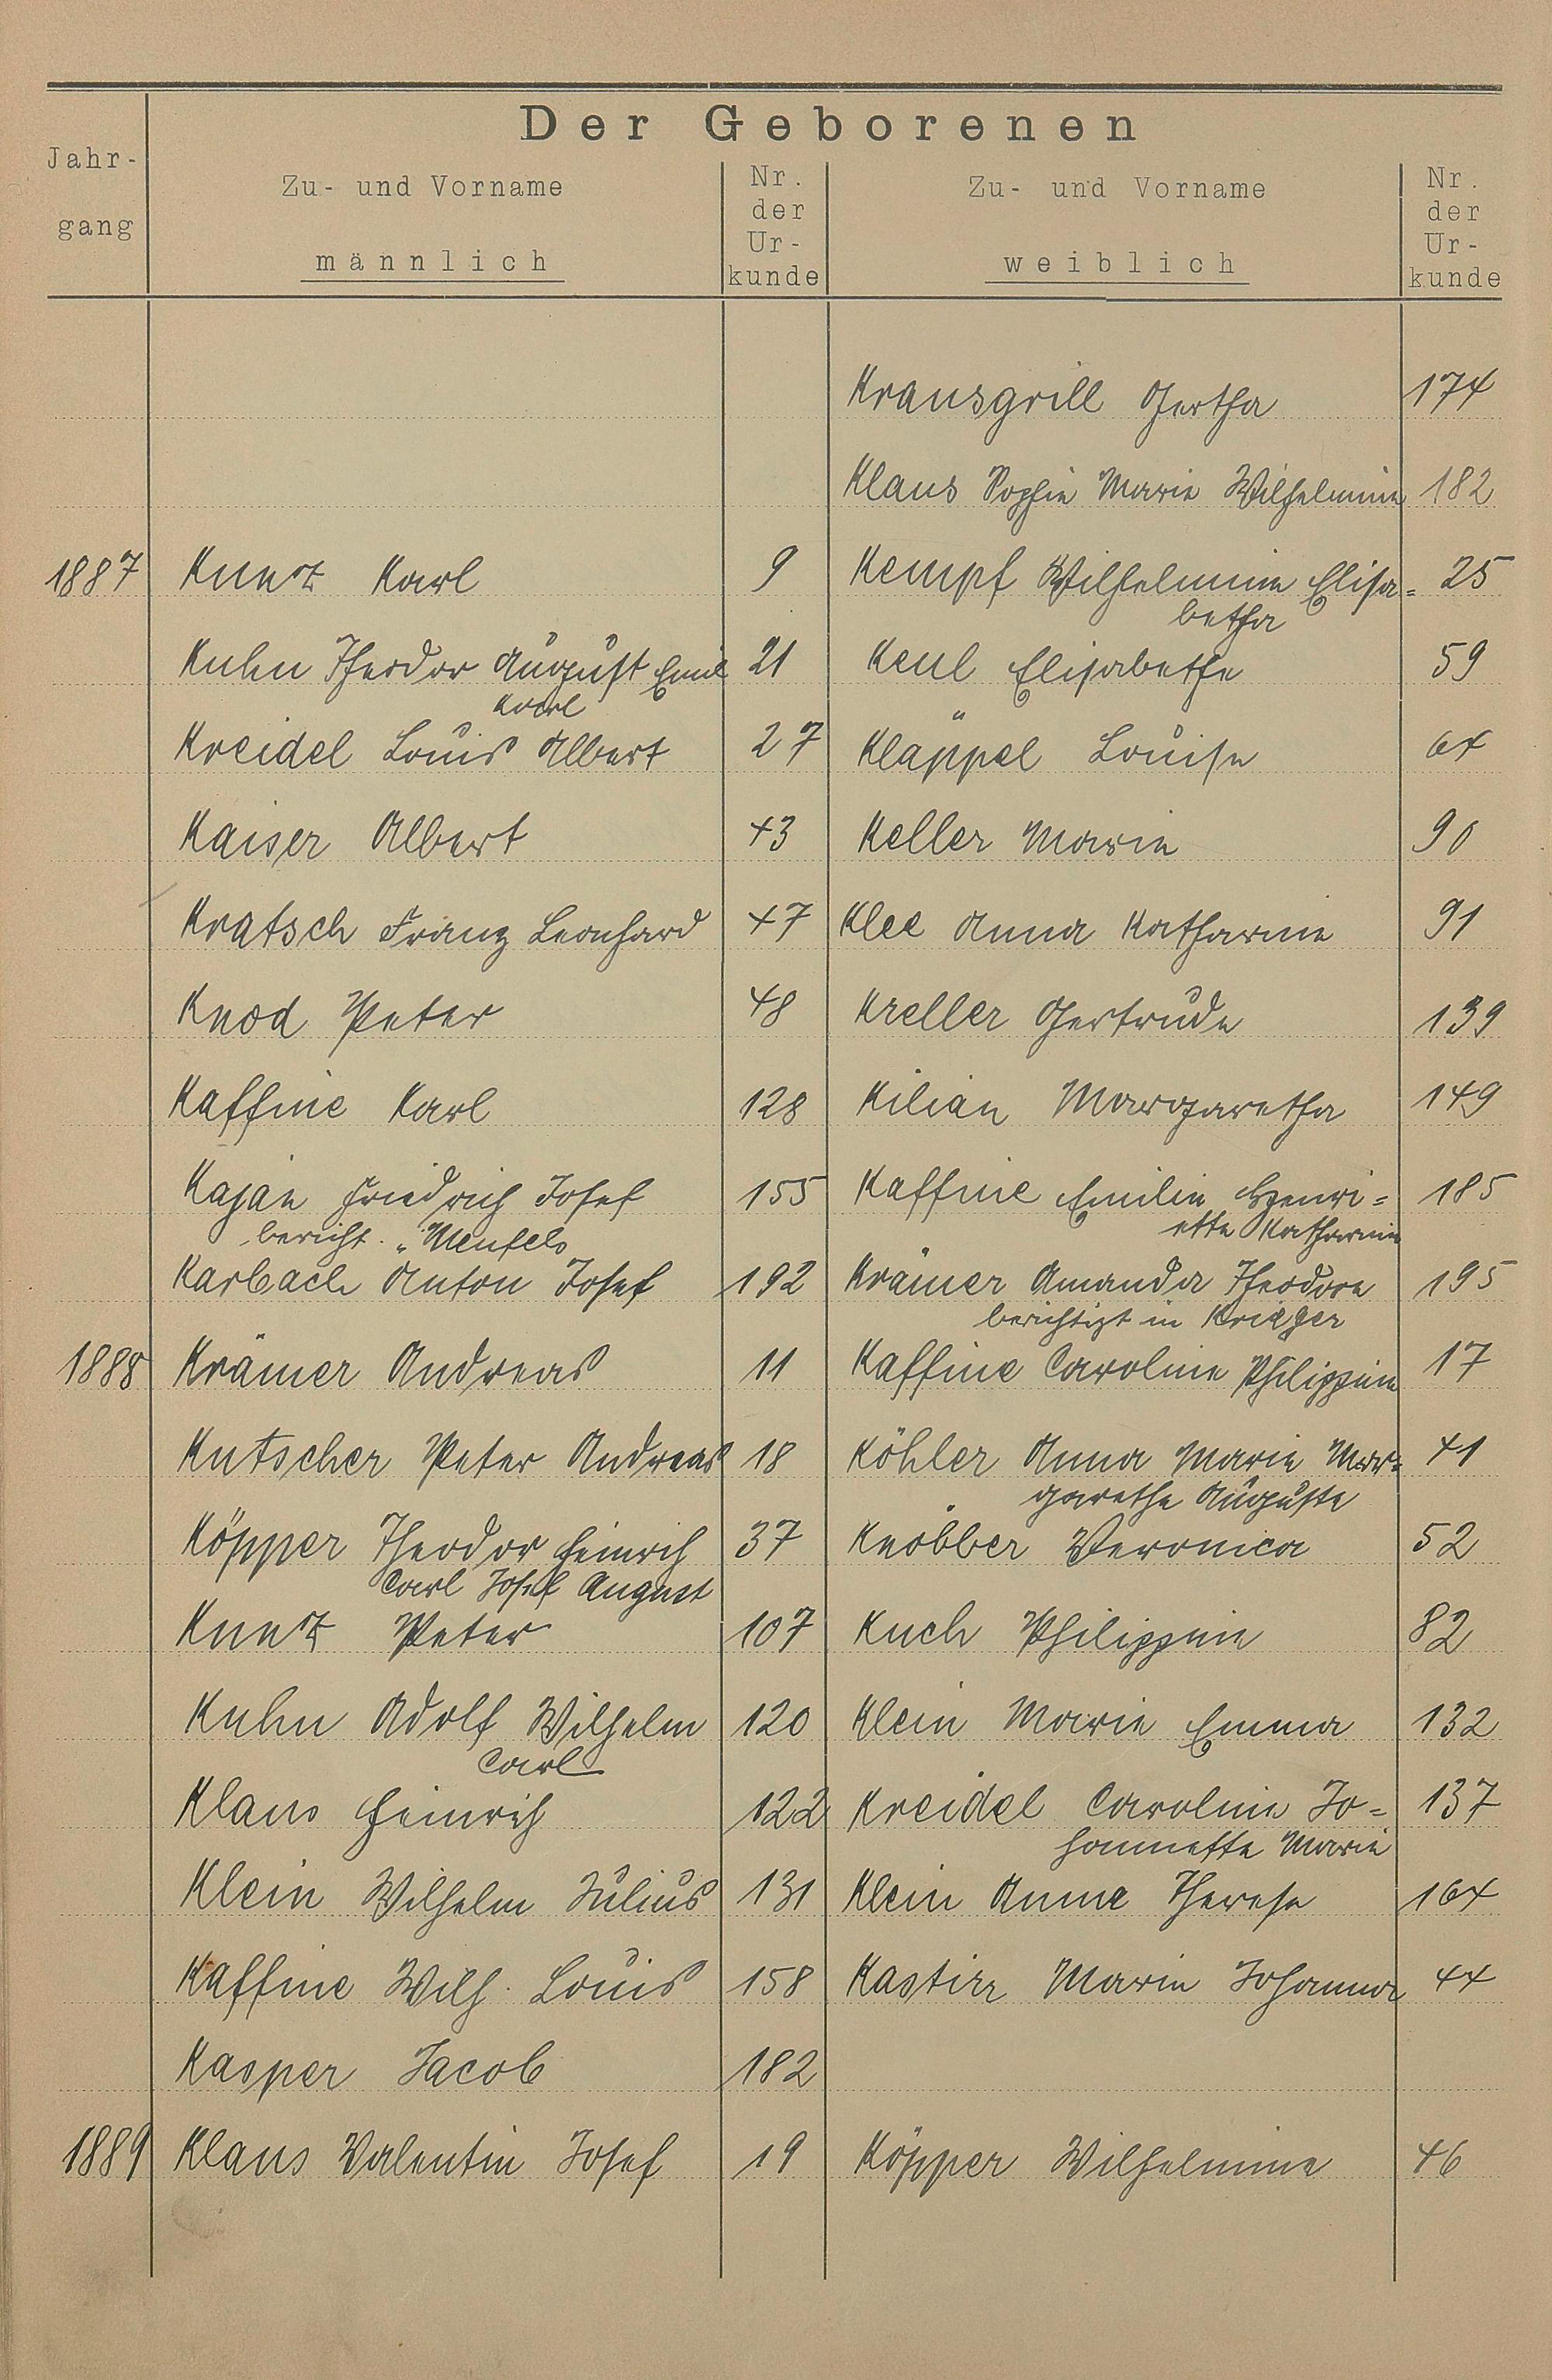 Der Geborenen
Jahr-
gang
Zu- und Vorname
männlich
Nr.
der
Ur-
kunde
Zu- und Vorname
weiblich
Nr.
der
Ur-
kunde
Krausgrill Hertha 174
Klaus Sophie Marie Wilhelmine 182
1887 Kunz Karl 9 Kempf Wilhelmine Elisa= 25
betha
Kuhn Theodor August Emil 21 Keul Elisabethe 59
Karl
Kreidel Louis Albert 27 Kläppel Louise 64
Kaiser Albert 43 Keller Marie 90
Kratsch Franz Leonhard 47 Klee Anna Katharine 91
Knod Peter 48 Kreller Gertrude 139
Kaffine Karl 128 Kilian Margaretha 149
Kajan Friedrich Josef 155 Kaffine Emilie Henri= 185
bericht. „Menfels ette Katharine
Karbach Anton Josef 192 Krämer Amanda Theodore 195
berichtigt in Krieger
1888 Krämer Andreas 11 Kaffine Caroline Philippine 17
Kutscher Peter Andreas 18 Köhler Anna Marie Mar= 41
garethe Auguste
Köpper Theodor Heinrich 37 Knöbber Veronica 52
Carl Josef August
Kunz Peter 107 Kuch Philippine 82
Kuhn Adolf Wilhelm 120 Klein Marie Emma 132
Carl
Klaus Heinrich 122 Kreidel Caroline Jo= 137
hannette Marie
Klein Wilhelm Julius 131 Klein Anna Therese 164
Kaffine Wilh. Louis 158 Kastirr Marie Johanna 44
Kasper Jacob 182
1889 Klaus Valentin Josef 19 Köpper Wilhelmine 46